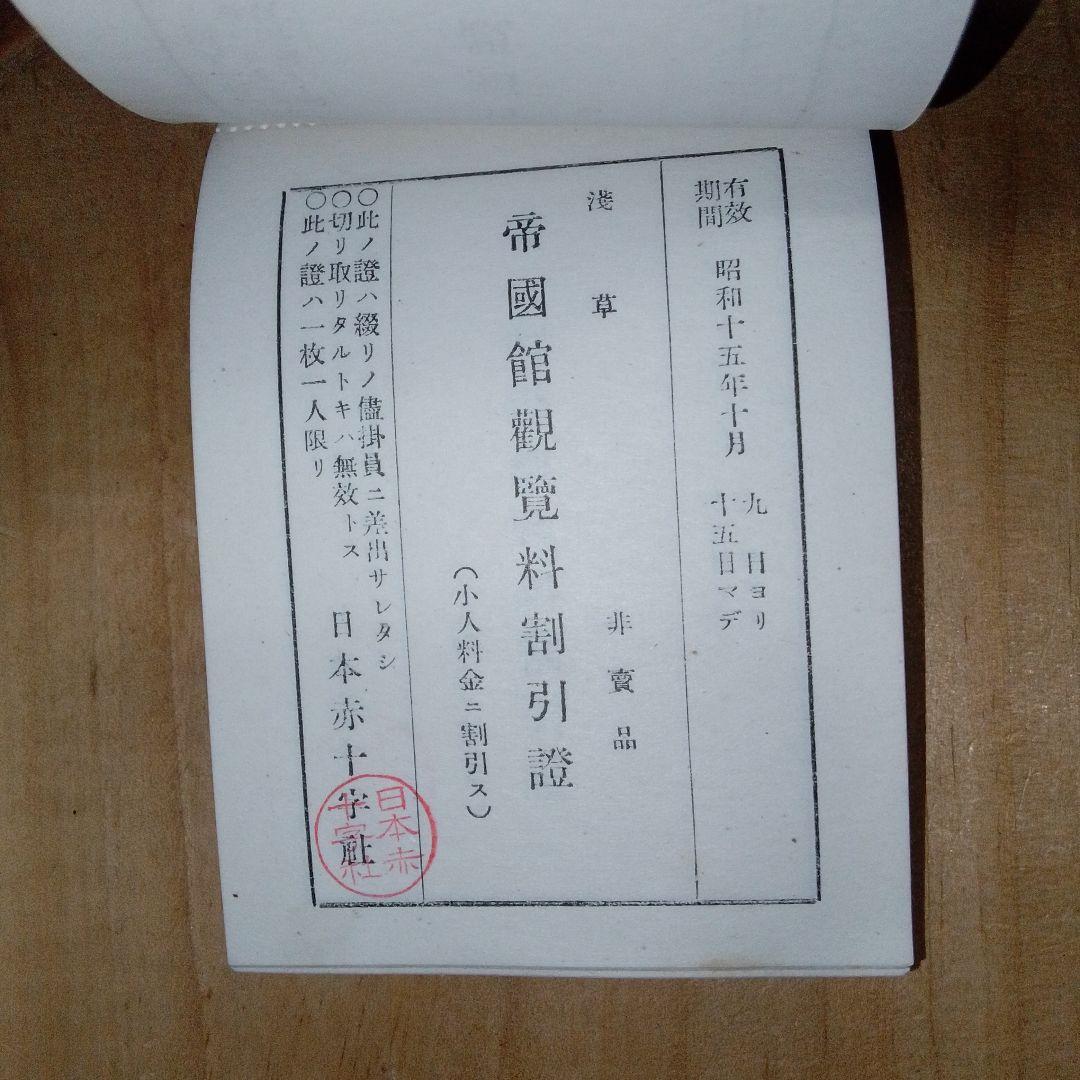 有效期間 昭和十五年十月 九日ヨリ
十五日マデ
淺草 非賣品
帝國館觀覽料割引證
(小人料金ニ割引ス)
○此ノ證ハ綴リノ儘掛員ニ差出サレタシ
○切リ取リタルトキハ無效トス
○此ノ證ハ一枚一人限リ
日本赤十字社
日本赤十字社